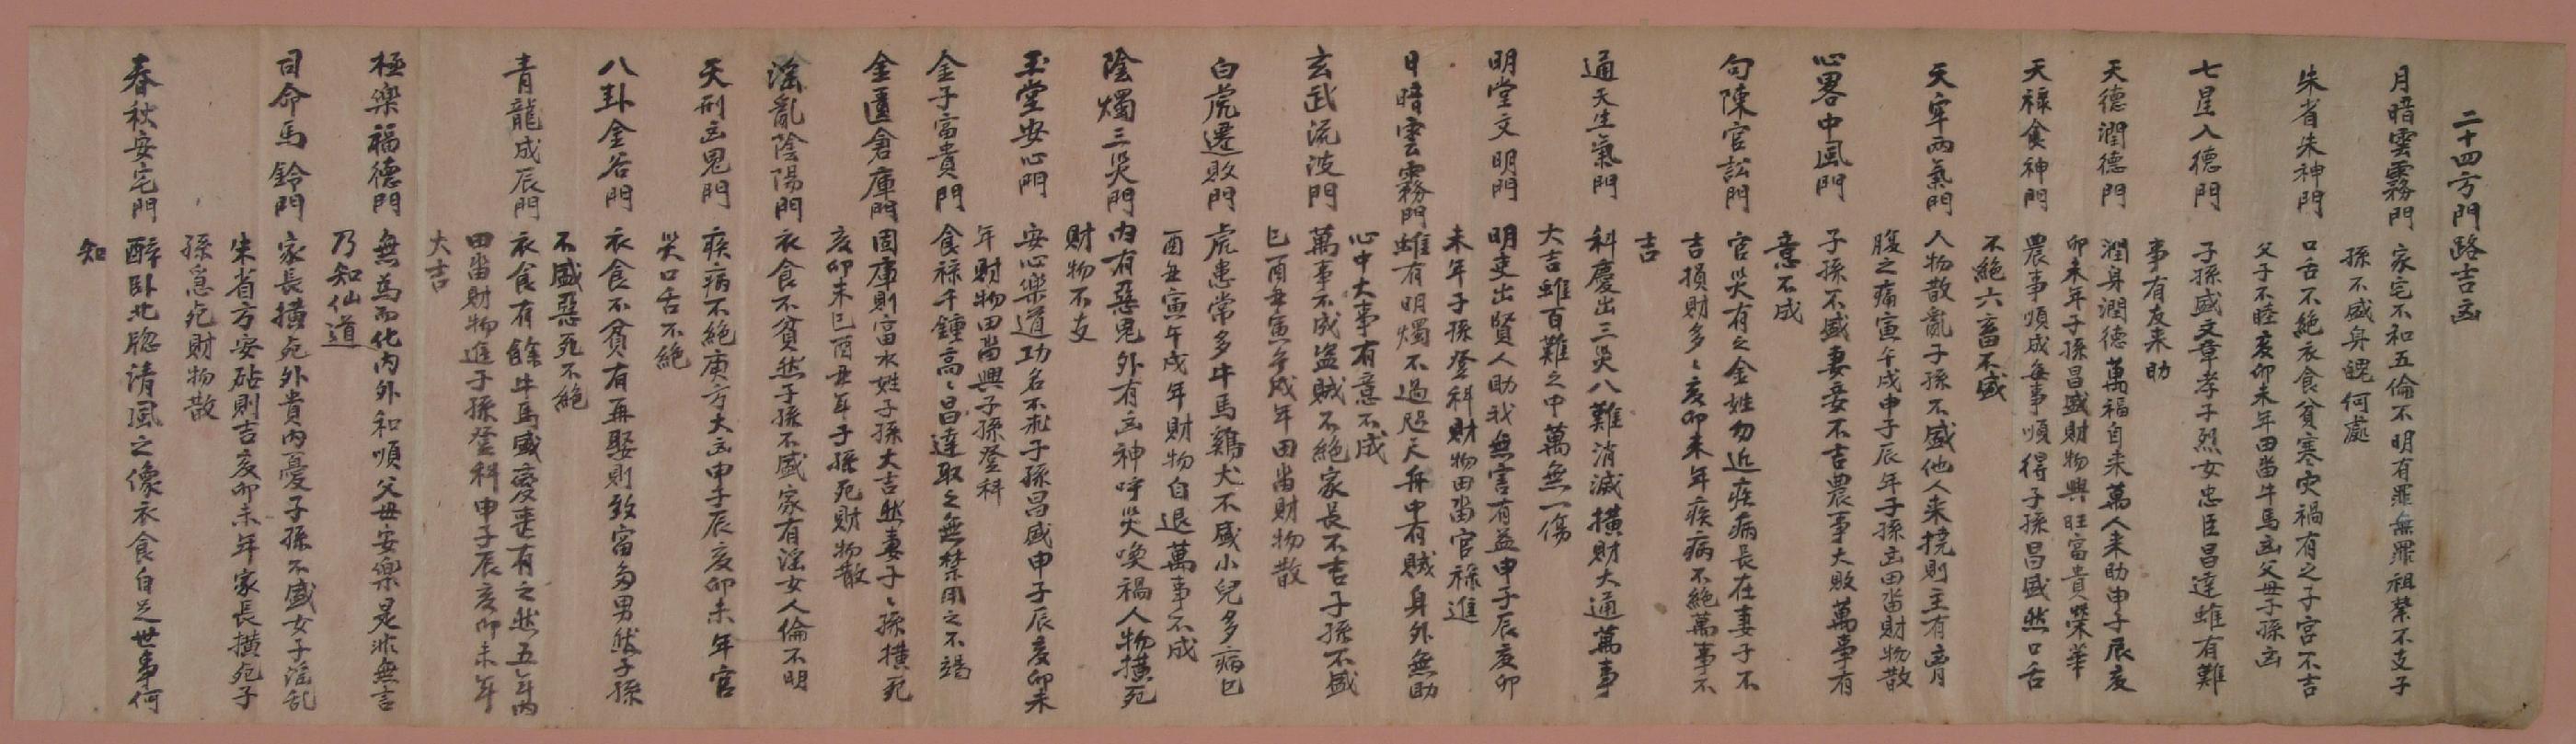 二十四方門路吉凶
月暗雲霧門 家宅不和五倫不明有罪無罪祖業不支子
孫不盛身魄何處
朱省朱神門 口舌不絶衣食貧寒灾禍有之子宮不吉
父子不睦亥卯未年田畓牛馬凶父母子孫凶
七星入德門 子孫盛文章孝子烈女忠臣昌達雖有難
事有友来助
天德潤德門 潤身潤德萬福自来萬人来助申子辰亥
卯未年子孫昌盛財物興旺富貴榮華
天祿食神門 農事順成每事順得子孫昌盛然口舌
不絶六畜不盛
天牢兩氣門 人物散亂子孫不盛他人来撓則主有膏
腹之痛寅午戌申子辰年子孫凶田畓財物散
心畧中風門 子孫不盛妻妾不吉農事大敗萬事有
意不成
句陳官訟門 官災有之金姓勿近疾病長在妻子不
吉損財多〻亥卯未年疾病不絶萬事不
吉
通天生氣門 科慶出三災八難消滅橫財大通萬事
大吉雖百難之中萬無一傷
明堂文明門 明吏出賢人助我無害有益申子辰亥卯
未年子孫登科財物田畓官祿進
日暗雲霧門 雖有明燭不過咫尺舟中有賊身外無助
心中大事有意不成
玄武流波門 萬事不成盜賊不絶家長不吉子孫不盛
巳酉丑寅午戌年田畓財物散
白虎遷敗門 虎患常多牛馬鷄犬不盛小兒多病巳
酉丑寅午戌年財物自退萬事不成
陰燭三災門 內有惡鬼外有凶神呼災喚禍人物橫死
財物不支
玉堂安心門 安心樂道功名不求子孫昌盛申子辰亥卯未
年財物田畓興子孫登科
金子富貴門 食祿千鍾高〻昌達取之無禁用之不竭
金匱倉庫門 固庫則富水姓子孫大吉然妻子〻孫橫死
亥卯未巳酉丑年子孫死財物散
滛亂陰陽門 衣食不貧然子孫不盛家有淫女人倫不明
天刑凶鬼門 疾病不絶庚方大凶申子辰亥卯未年官
災口舌不絶
八卦金谷門 衣食不貧有再娶則致富多男然子孫
不盛惡死不絶
青龍成辰門 衣食有餘牛馬盛憂患有之然五年內
田畓財物進子孫登科申子辰亥卯未年
大吉
極樂福德門 無為而化內外和順父母安樂是非無言
乃知仙道
司命馬鈴門 家長橫死外貴內憂子孫不盛女子淫乱
朱省方安砧則吉亥卯未年家長橫死子
孫急死財物散
春秋安宅門 醉臥北牕請風之像衣食自足世事何
知